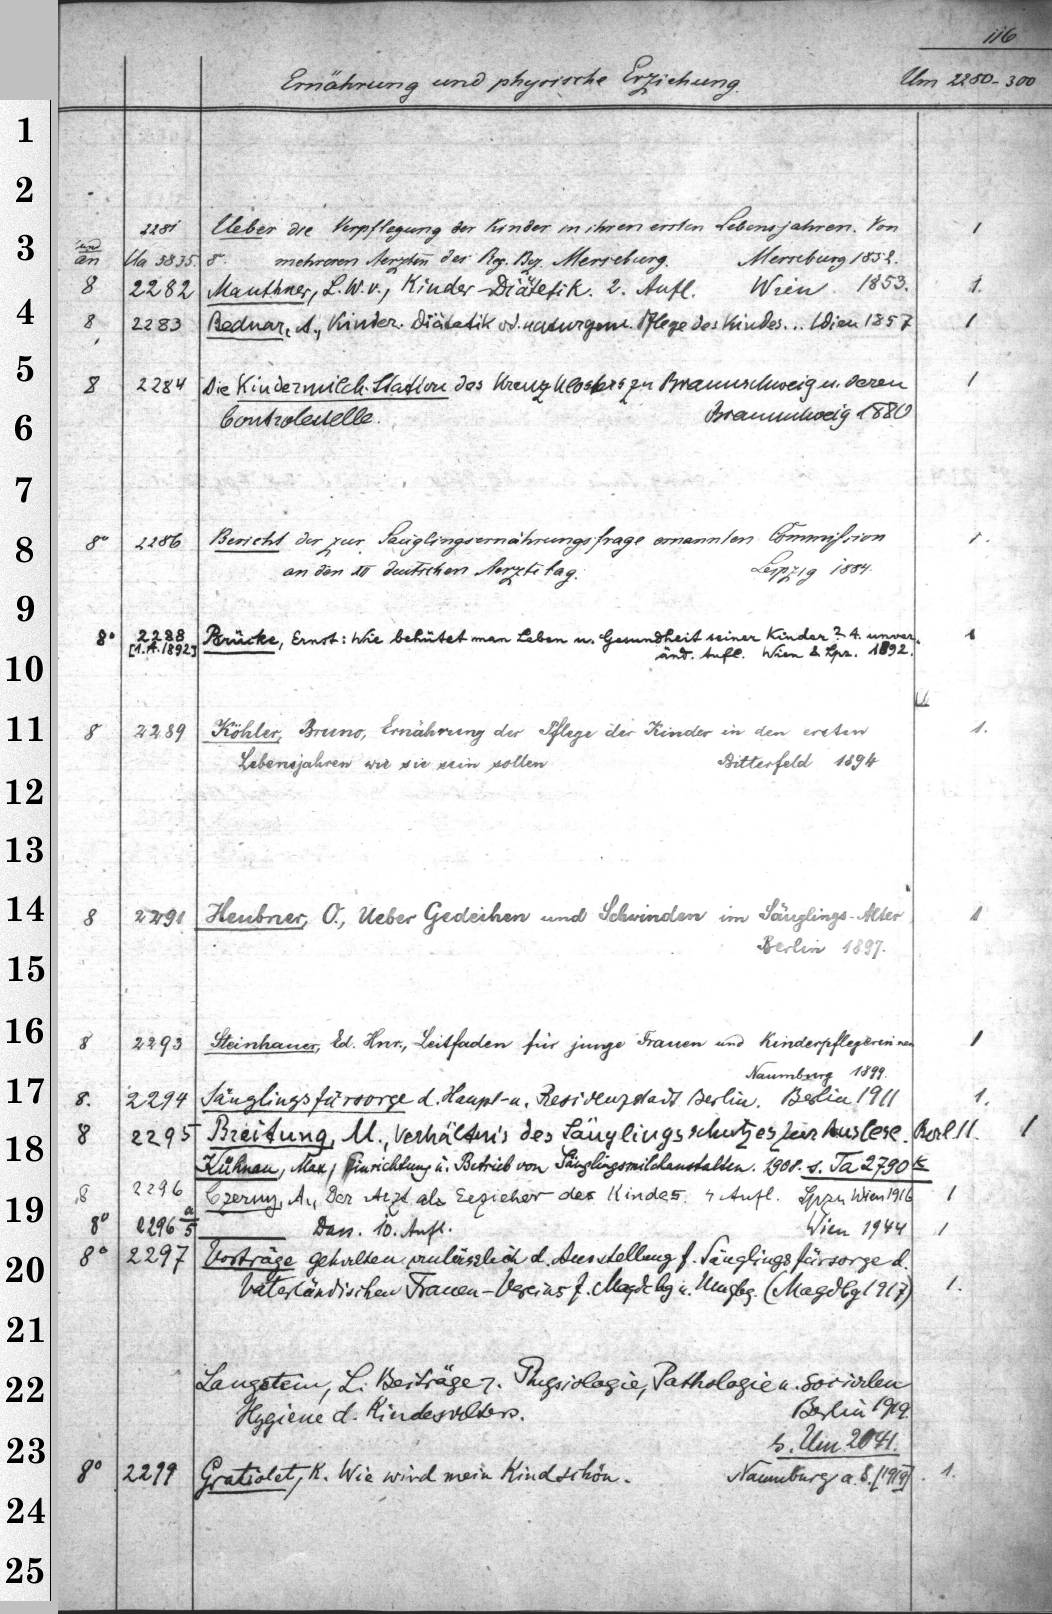 116
Ernährung und physische Erziehung. Um 2280-300
1
2
2281 Ueber die Verpflegung der Kinder in ihren ersten Lebensjahren. Von 1
3 und an Ua 3835. 8° mehreren Aerzten der Reg. Bez. Merseburg. Merseburg 1852.
8 2282 Mauthner, L. W. v., Kinder-Diätetik. 2. Aufl. Wien 1853. 1.
4 8 2283 Bednar, A., Kinder-Diätetik od. naturgem. Pflege des Kindes... Wien 1857 1
5 8 2284 Die Kindermilch-Station des Kreuzklosters zu Braunschweig u. deren 1
6 Controlestelle. Braunschweig 1880
7
8 8° 2286 Bericht der zur Säuglingsernährungsfrage ernannten Commission 1.
an den XII deutschen Aerztetag. Leipzig 1884.
9
8° 2288 Brücke, Ernst: Wie behütet man Leben u. Gesundheit seiner Kinder? 4. unver- 1
10 [1.A.1892] änd. Aufl. Wien & Lpz. 1892.
11 8 2289 Köhler, Bruno, Ernährung der Pflege der Kinder in den ersten 1.
Lebensjahren wie sie sein sollen Bitterfeld 1894
12
13
14 8 2291 Heubner, O., Ueber Gedeihen und Schwinden im Säuglings-Alter 1
Berlin 1897.
15
16 8 2293 Steinhauer, Ed. Hnr., Leitfaden für junge Frauen und Kinderpflegerinnen 1
Naumburg 1899.
17 8. 2294 Säuglingsfürsorge d. Haupt- u. Residenzstadt Berlin. Berlin 1911 1.
8 2295 Breitung, M., Verhältnis des Säuglingsschutzes zur Auslese. Berl 11. 1
18 Kühnau, Max, Einrichtung u. Betrieb von Säuglingsmilchanstalten. 1908. s. Ta 2790
8 2296 Czerny, A., Der Arzt als Erzieher des Kindes. 4 Aufl. Lpz u Wien 1916 1
19 8° 2296 a/5 Dass. 10. Aufl. Wien 1944 1
20 8° 2297 Vorträge gehalten anlässlich d. Ausstellung f. Säuglingsfürsorge d.
Vaterländischen Frauen-Vereins f. Magdebg u. Umgbg. (Magdbg 1917) 1.
21
22 Langstein, L. Beiträge z. Physiologie, Pathologie u. sozialen
Hygiene d. Kindesalters. Berlin 1919.
23 s. Um 2041.
8° 2299 Gratiolet, K. Wie wird mein Kind schön. Naumburg a. S. [1919] 1.
24
25